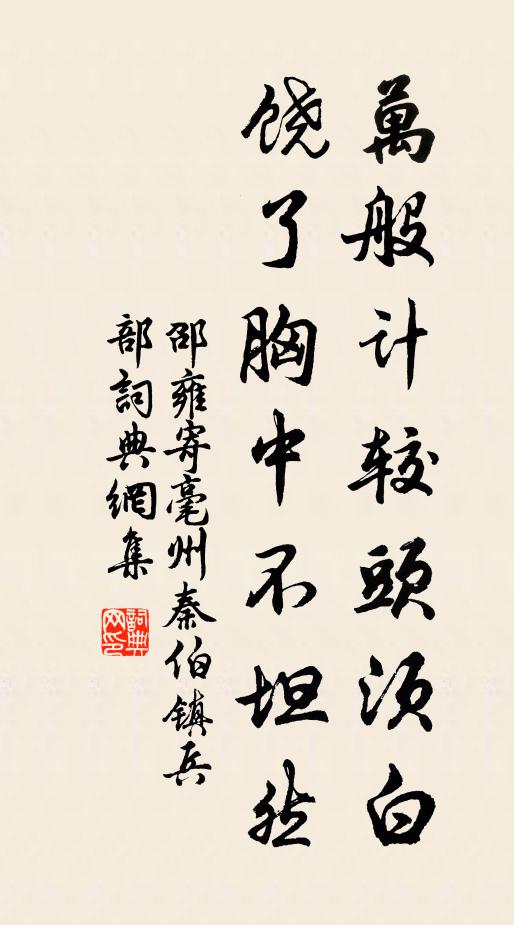 萬般计较頭须白
饶了胸中不坦然
邵雍寄亳州秦伯镇兵
部詞典網集
詞典
网印